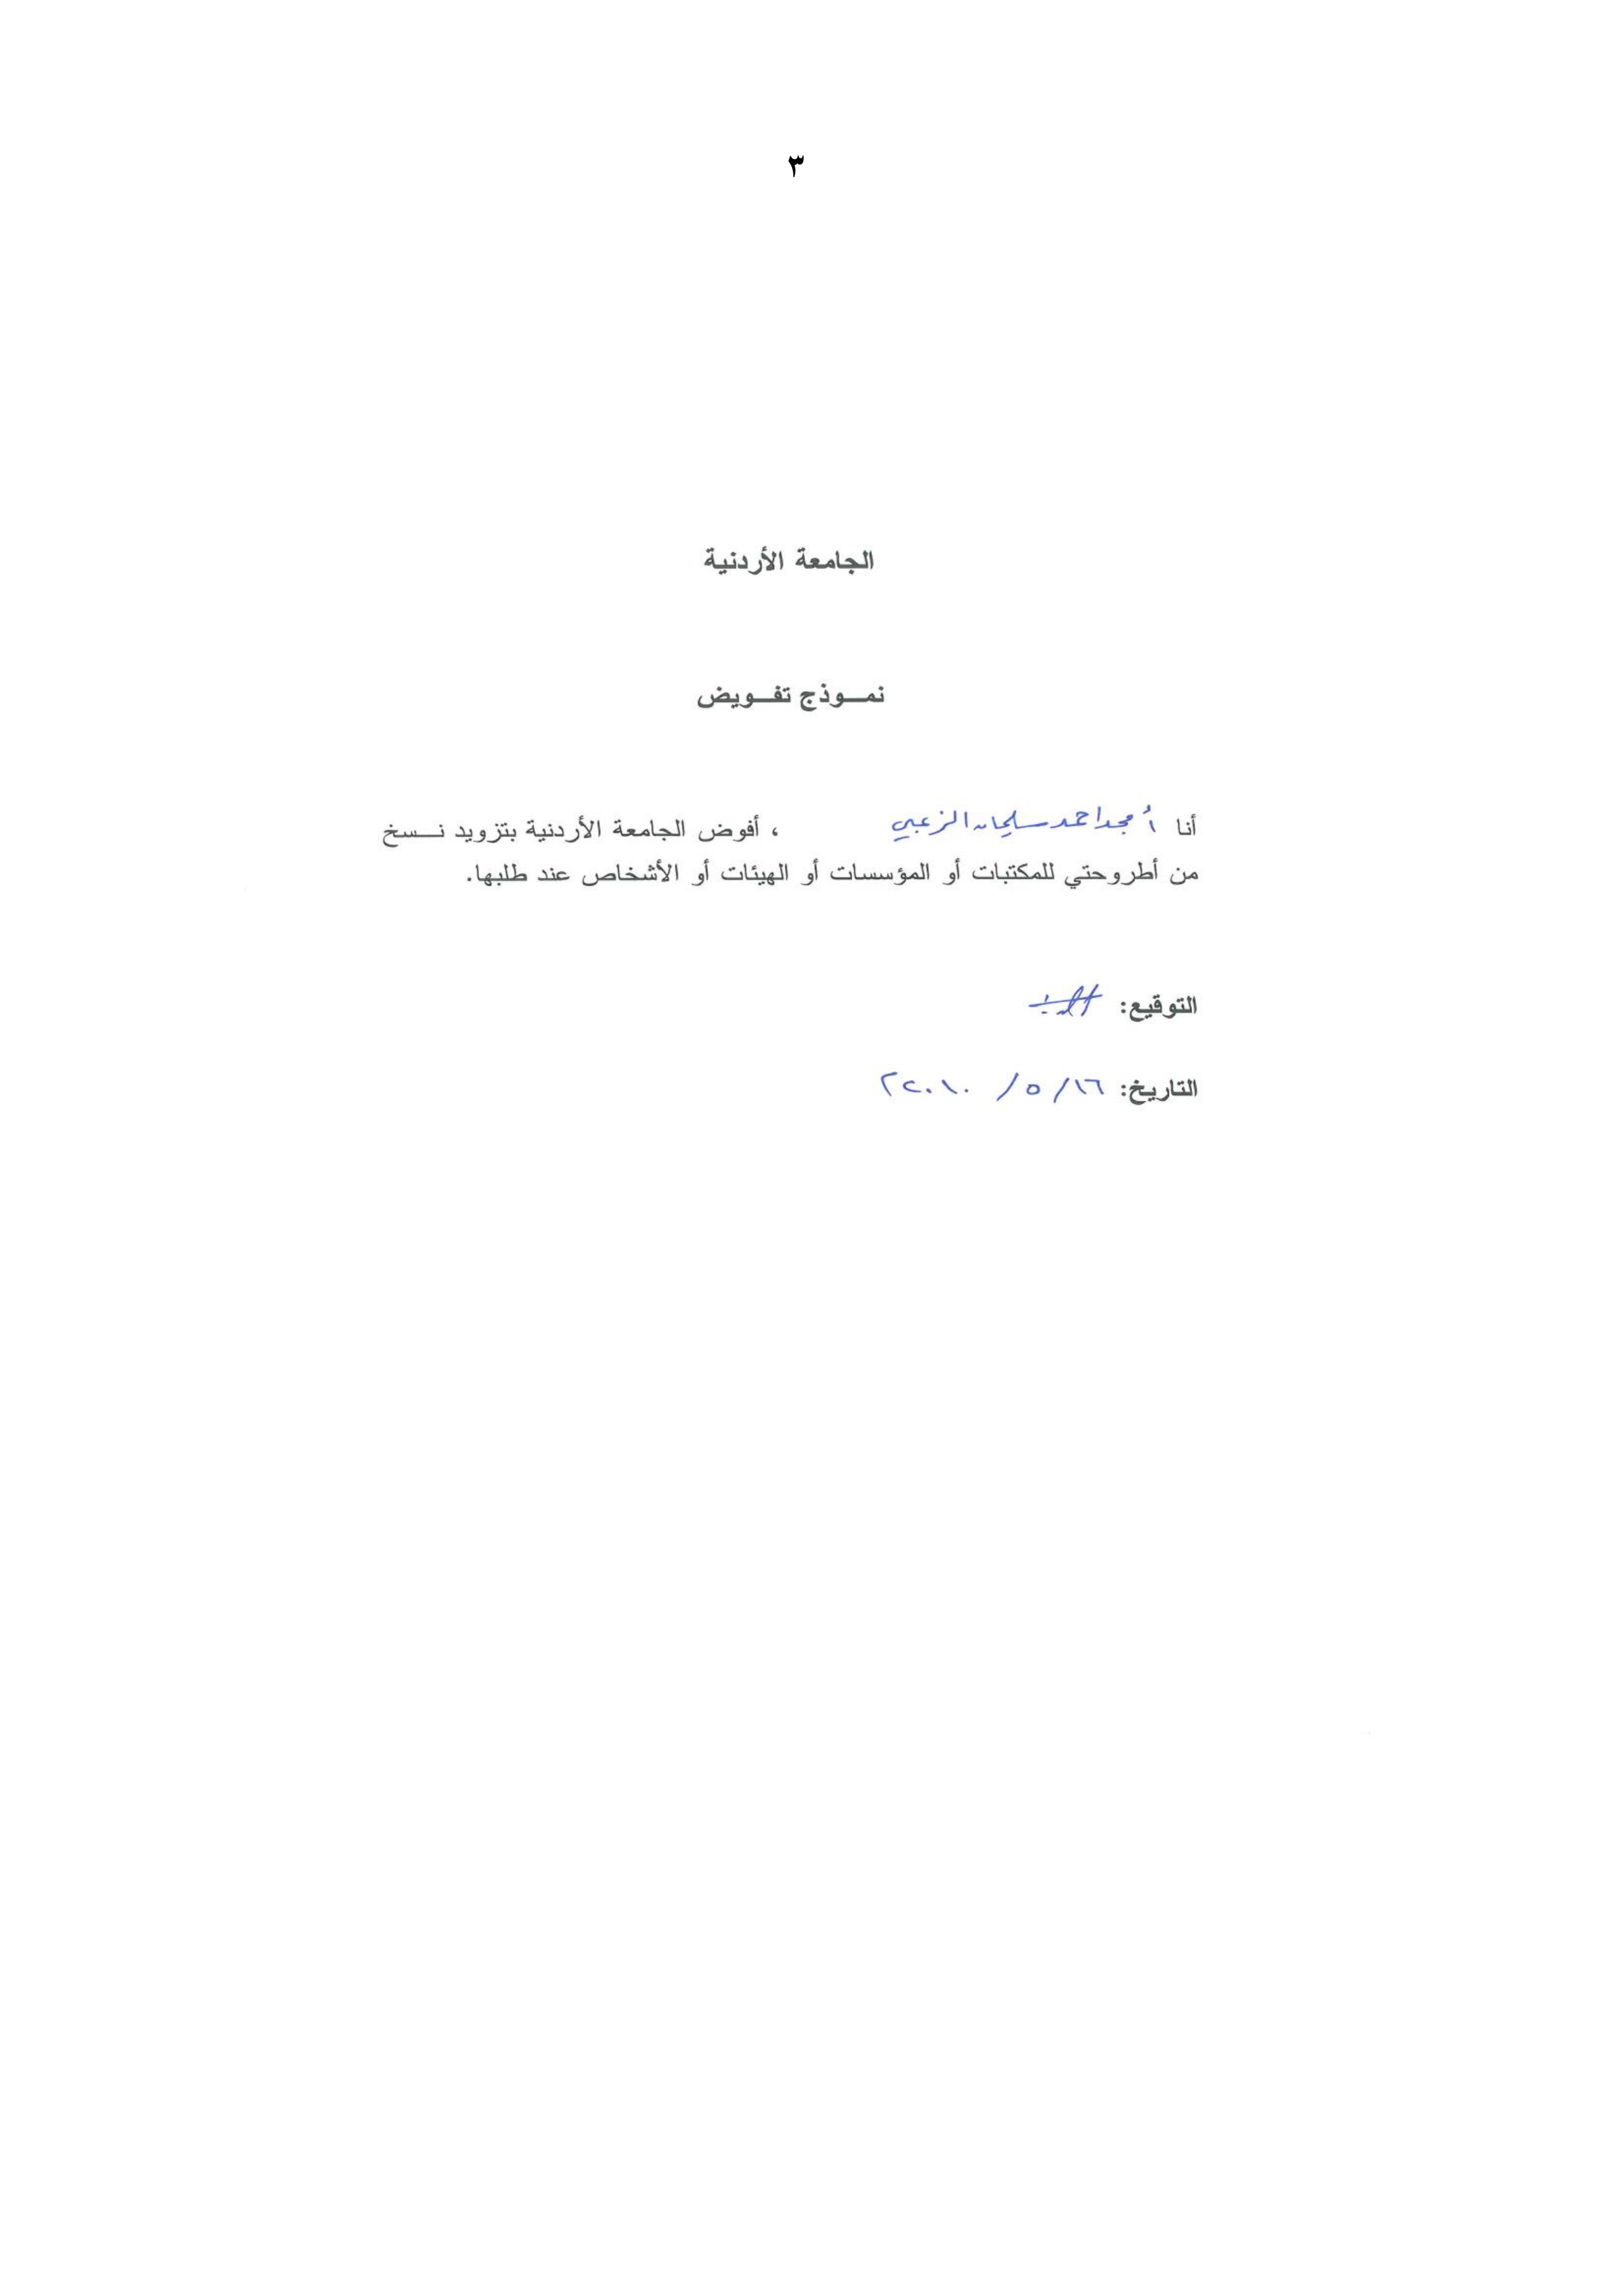 ٣
الجامعة الأردنية
نمـــوذج تفـــويض
أنا أمجد احمد سليمان الزعبي ، أفوض الجامعة الأردنية بتزويد نـــسخ
من أطروحتي للمكتبات أو المؤسسات أو الهيئات أو الأشخاص عند طلبها.
التوقيع:
التاريخ: ١٦/ ٥/ ٢٠١٠